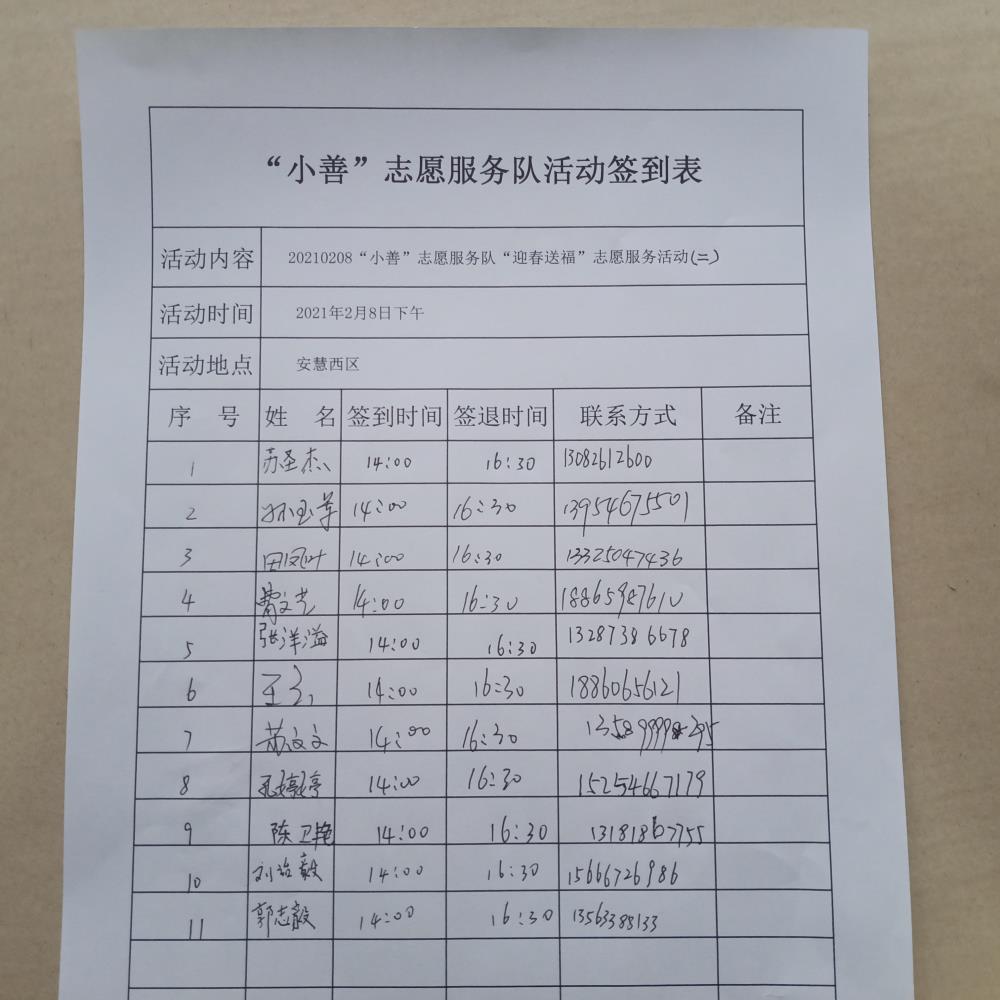 “小善”志愿服务队活动签到表
活动内容 20210208“小善”志愿服务队“迎春送福”志愿服务活动(二)
活动时间 2021年2月8日下午
活动地点 安慧西区
序 号 姓 名 签到时间 签退时间 联系方式 备注
1 苏圣杰 14:00 16:30 13082612600
2 14:00 16:30 13954675501
3 田凤叶 14:00 16:30 13325047436
4 14:00 16:30
5 张洋溢 14:00 16:30 13287386678
6 14:00 16:30 18860656121
7 苏文文 14:00 16:30
8 孔婷婷 14:00 16:30 15254667179
9 陈卫艳 14:00 16:30
10 刘治毅 14:00 16:30 15666726986
11 郭志毅 14:00 16:30 13563388133